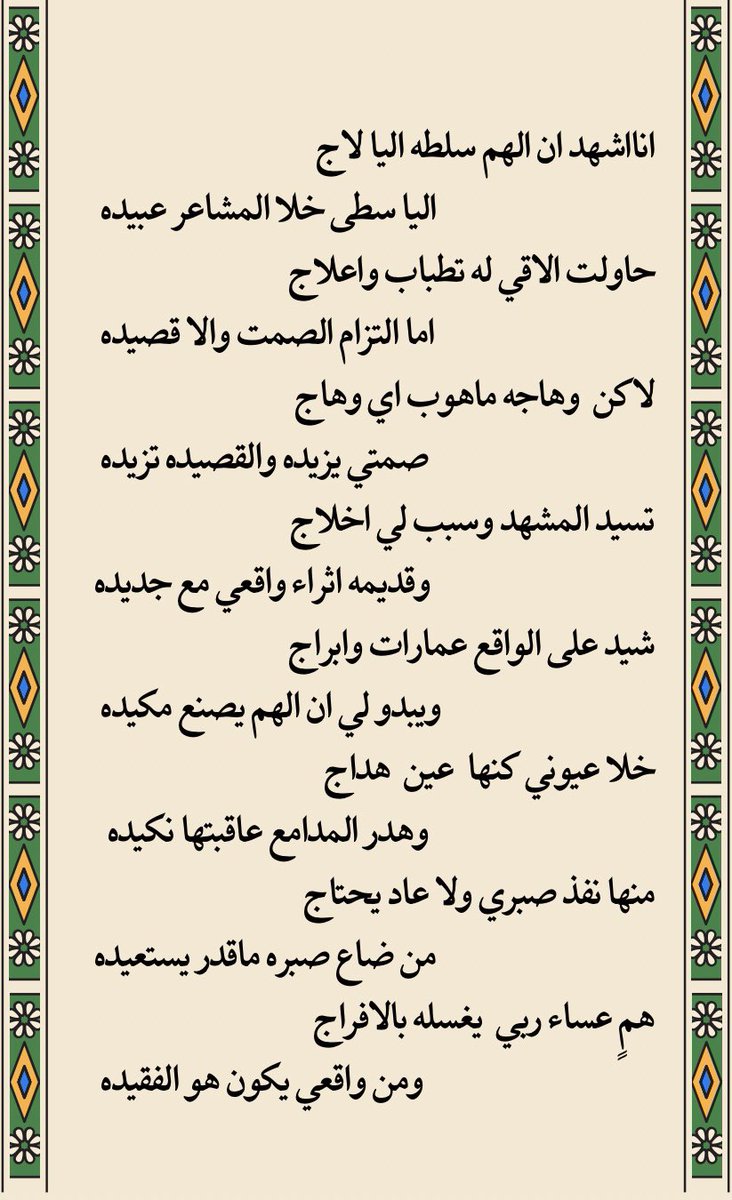 انااشهد ان الهم سلطه اليا لاج
اليا سطى خلا المشاعر عبيده
حاولت الاقي له تطباب واعلاج
اما التزام الصمت والا قصيده
لاكن وهاجه ماهوب اي وهاج
صمتي يزيده والقصيده تزيده
تسيد المشهد وسبب لي اخلاج
وقديمه اثراء واقعي مع جديده
شيد على الواقع عمارات وابراج
ويبدو لي ان الهم يصنع مكيده
خلا عيوني كنها عين هداج
وهدر المدامع عاقبتها نكيده
منها نفذ صبري ولا عاد يحتاج
من ضاع صبره ماقدر يستعيده
همٍ عساء ربي يغسله بالافراج
ومن واقعي يكون هو الفقيده